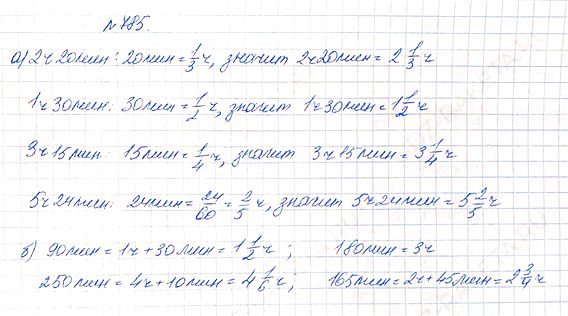 №785.
а) 2ч 20мин: 20мин = 1/3 ч, значит 2ч 20мин = 2 1/3 ч
1ч 30мин: 30мин = 1/2 ч, значит 1ч 30мин = 1 1/2 ч
3ч 15мин: 15мин = 1/4 ч, значит 3ч 15мин = 3 1/4 ч
5ч 24мин: 24мин = 24/60 = 2/5 ч, значит 5ч 24мин = 5 2/5 ч
б) 90мин = 1ч + 30мин = 1 1/2 ч ; 180мин = 3ч
250мин = 4ч + 10мин = 4 1/6 ч ; 165мин = 2ч + 45мин = 2 3/4 ч